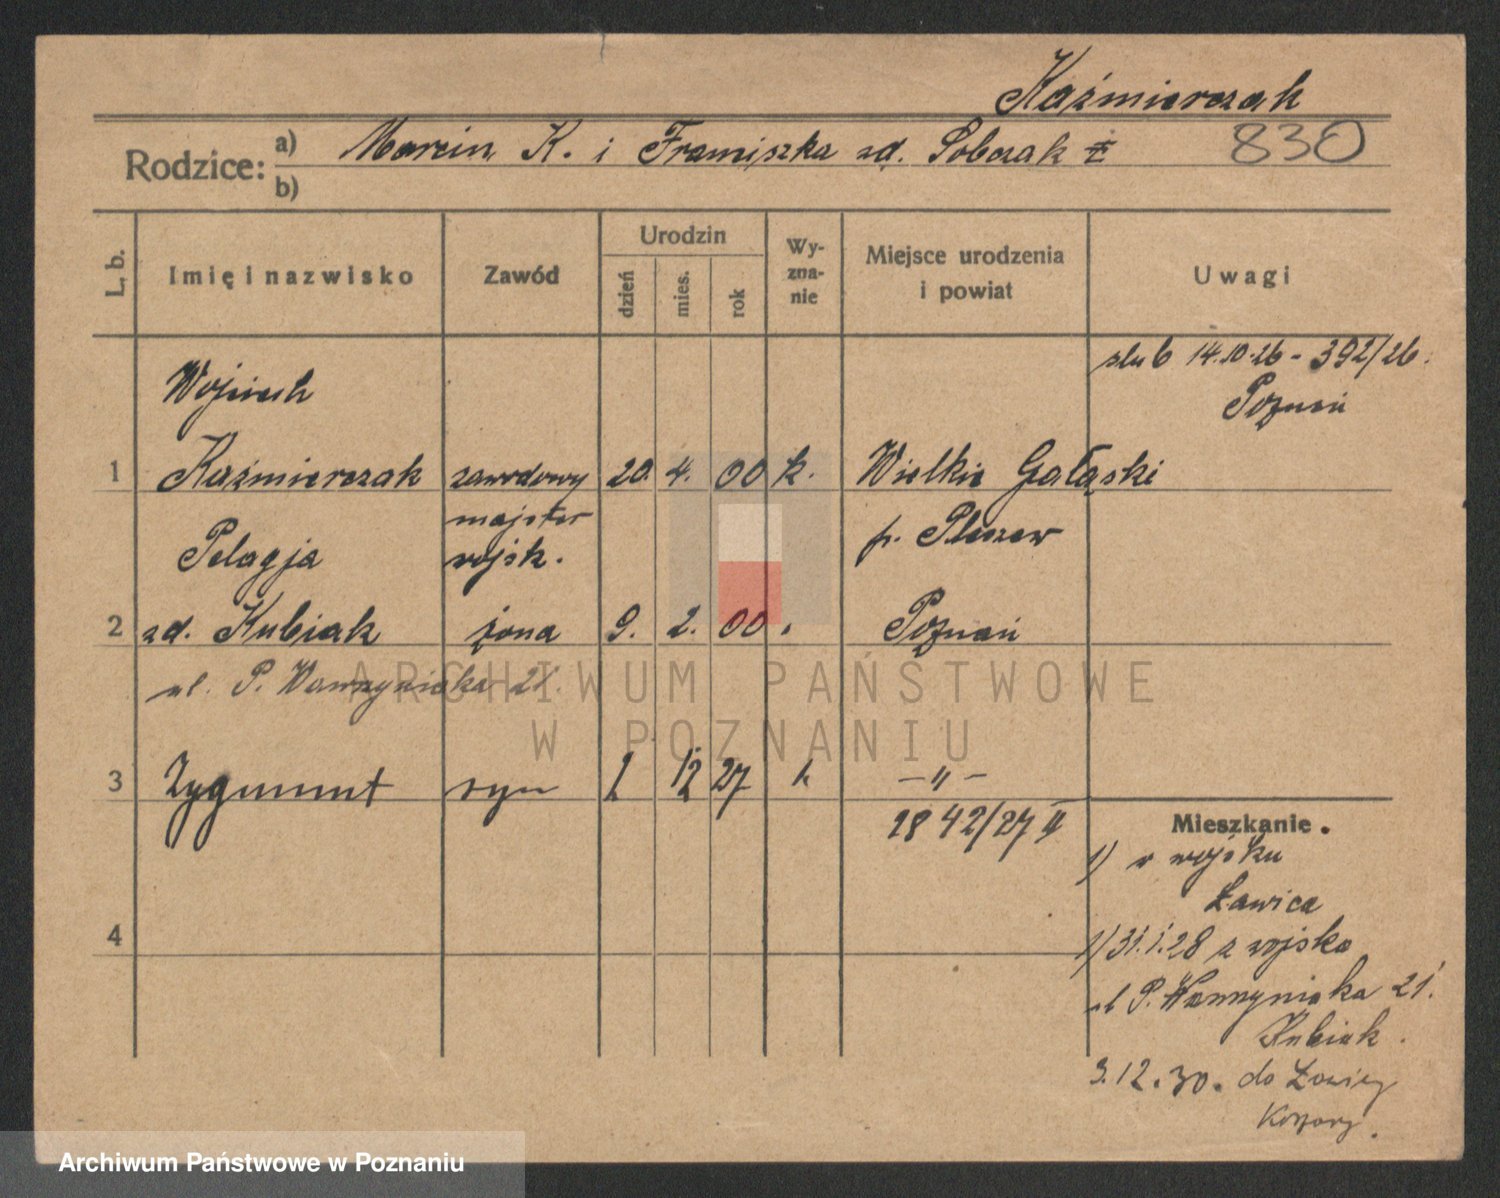 Kaźmierczak
Rodzice: a) Marcin K. i Franciszka zd. Sobczak 830
b)
L. b. Imię i nazwisko Zawód Urodzin dzień mies. rok Wy-zna-nie Miejsce urodzenia i powiat Uwagi
ślub 14.10.26 - 392/26.
Poznań
Wojciech
1 Kaźmierczak zawodowy 20. 4. 00 k. Wielkie Gałąski
majster
Pelagja wojsk. p. Pleszew
2 zd. Kubiak żona 9. 2. 00 Poznań
ul. P. Wawrzyniaka 21.
3 Zygmunt syn 1 12 27 k – " –
1842/27 II
Mieszkanie.
1) w wojsku
Ławica
1) 31.1.28 z wojska
ul P. Wawrzyniaka 21.
Kubiak.
4
3.12.30. do Ławicy
Koszary.
ARCHIWUM PAŃSTWOWE
W POZNANIU
Archiwum Państwowe w Poznaniu